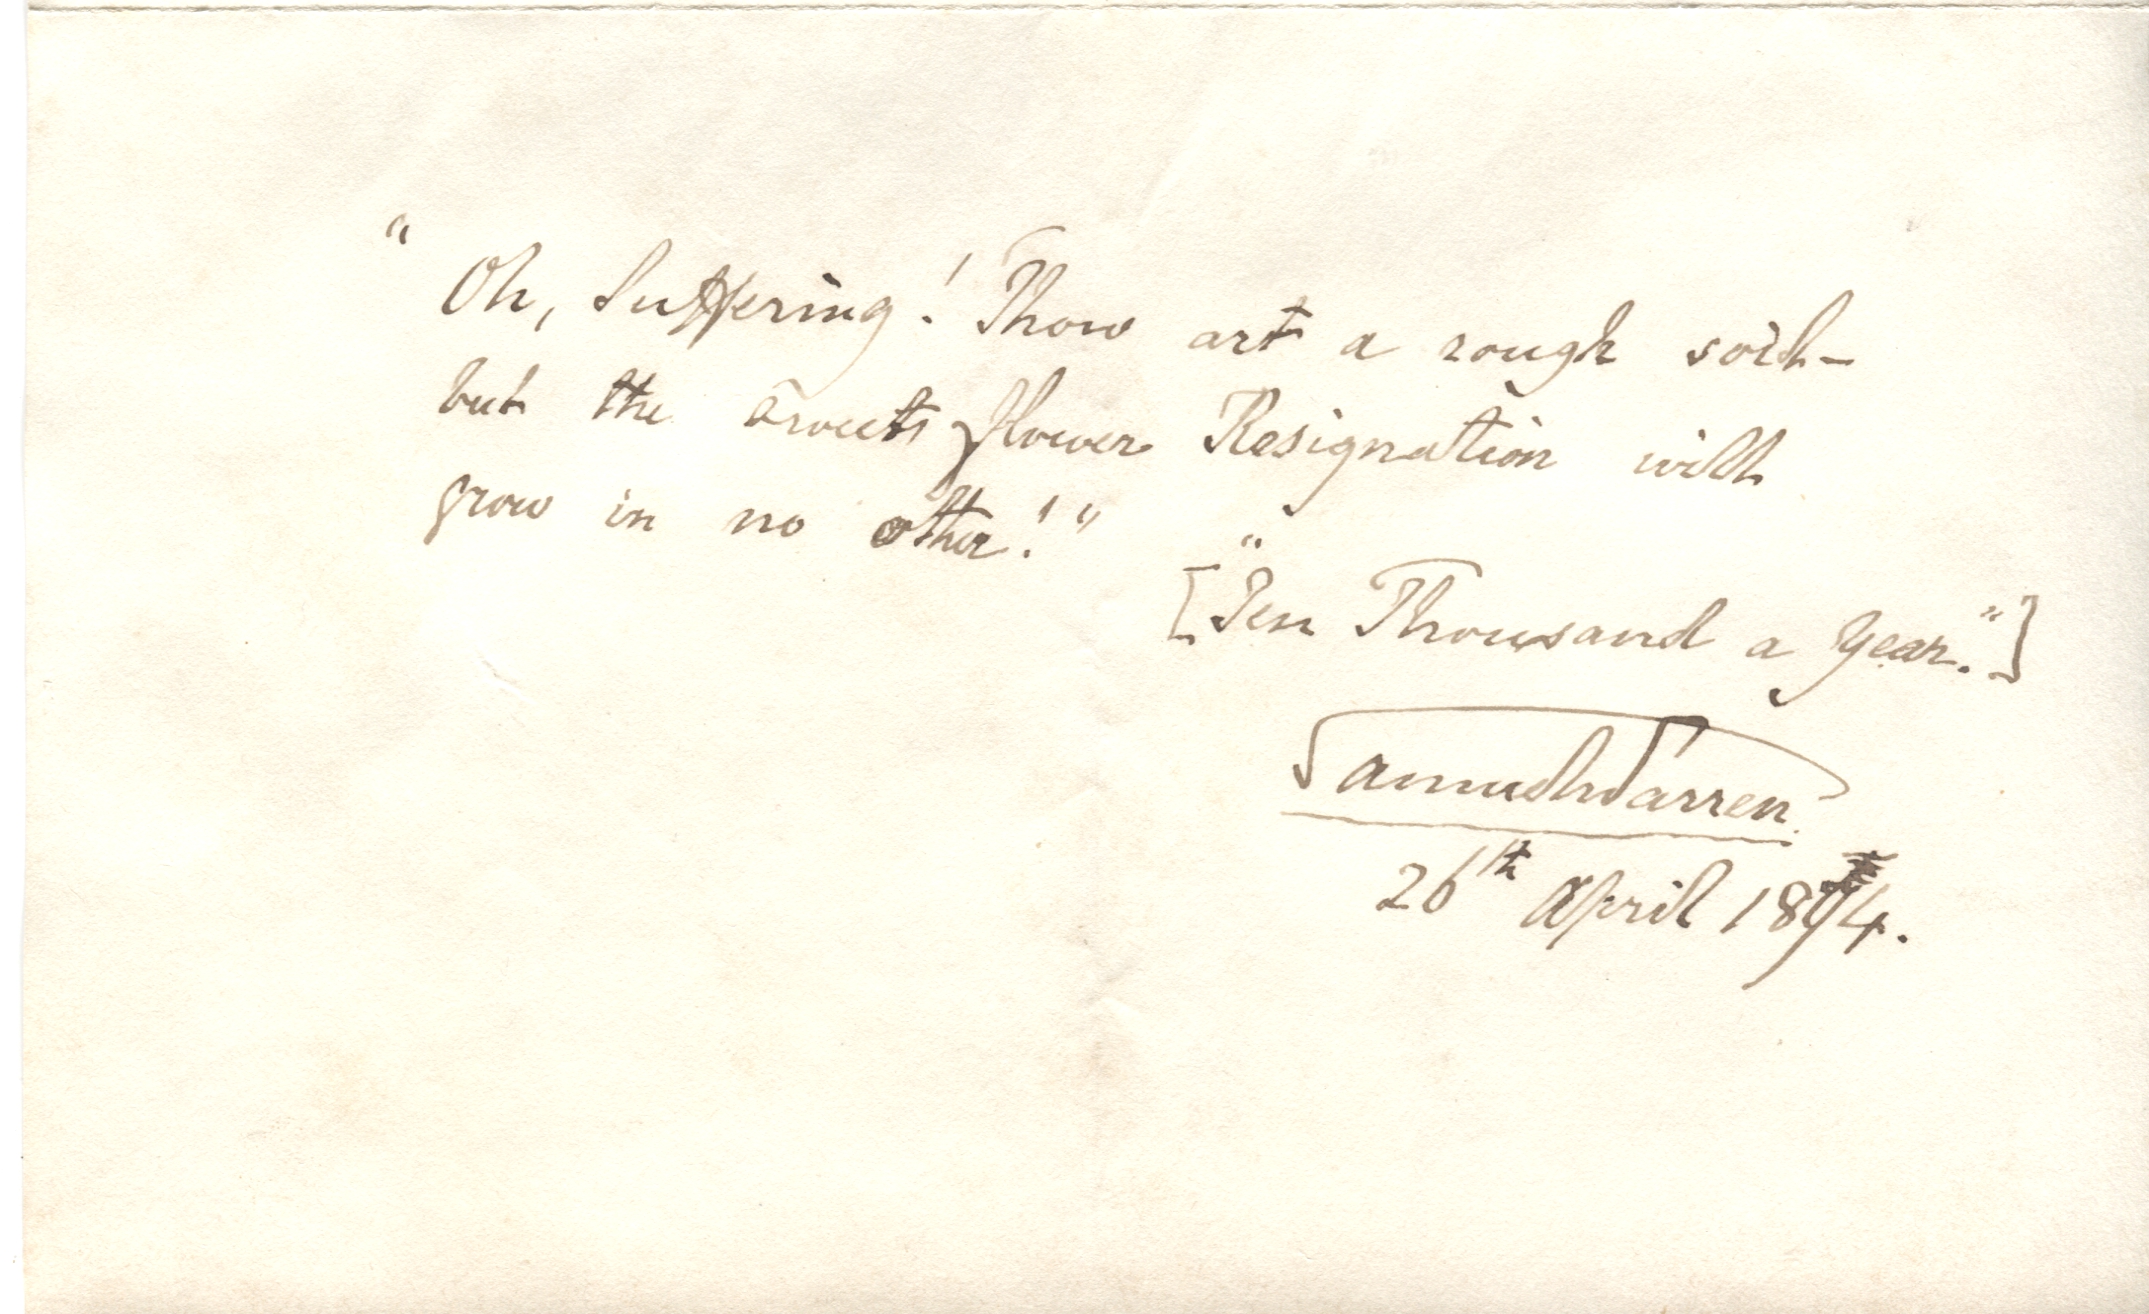 "Oh, Suffering! Thou art a rough soil—
but the sweet flower Resignation will
grow in no other!"
["Ten Thousand a Year."]
Samuel Warren.
26th April 1874.